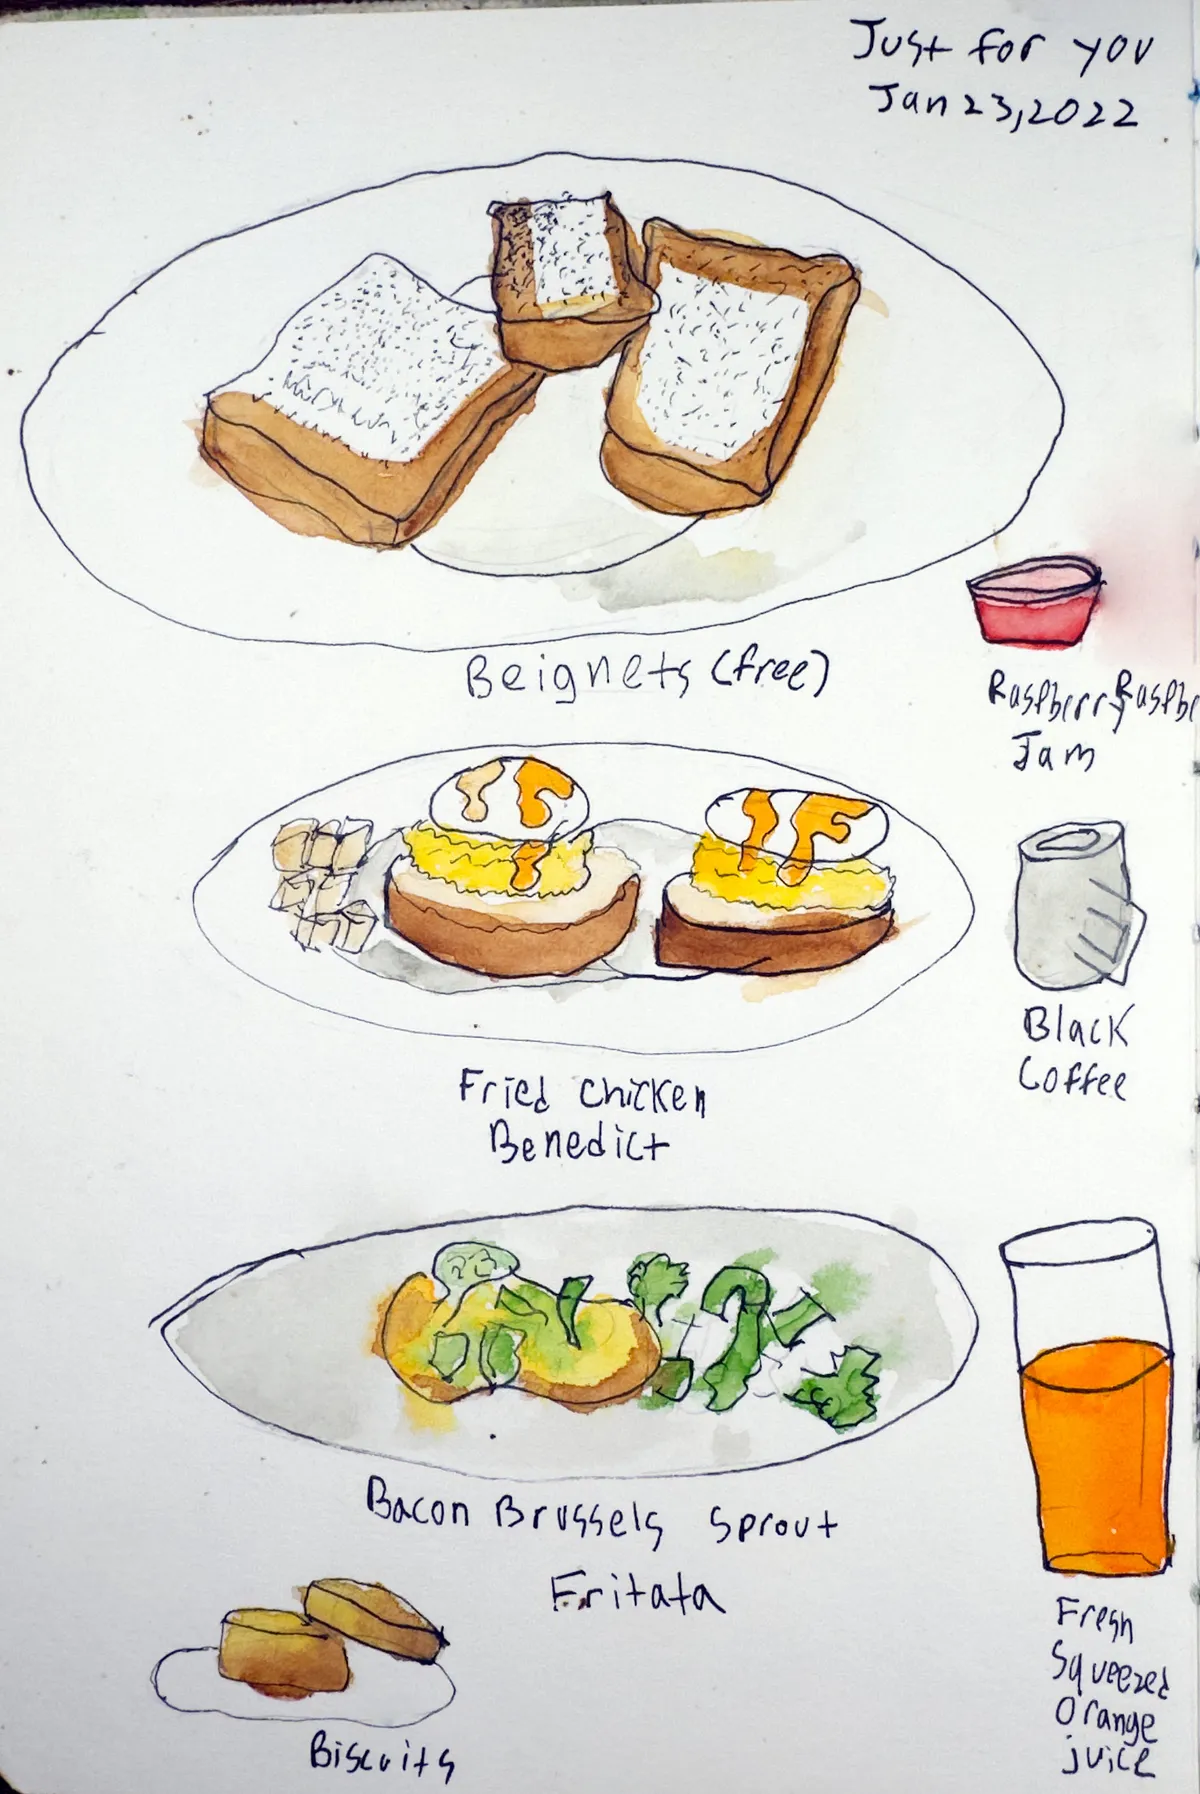 Just for you
Jan 23, 2022
Beignets (free)
Raspberry Raspbe
Jam
Black
Coffee
Fried Chicken
Benedict
Bacon Brussels Sprout
Fritata
Fresh
Squeezed
Orange
juice
Biscuits